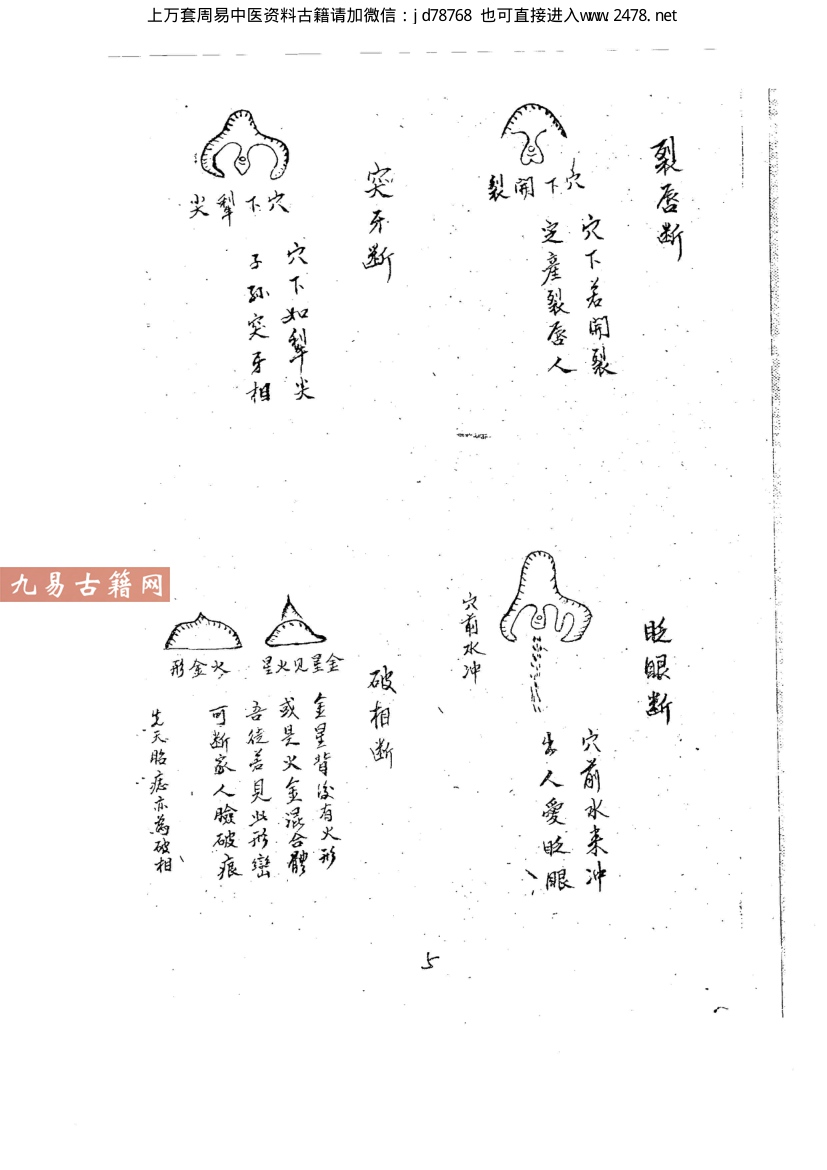 上万套周易中医资料古籍请加微信：jd78768 也可直接进入www.2478.net
裂唇断
穴下開裂
穴下若開裂
定產裂唇人
突牙断
穴下犁尖
穴下如犁尖
子孫突牙相
眨眼断
穴前水冲
穴前水来冲
出人愛眨眼
破相断
金星見火星
火金形
金星背後有火形
或是火金混合體
吾徒若見此形巒
可断家人臉破痕
先天胎痣亦為破相
九易古籍网
5